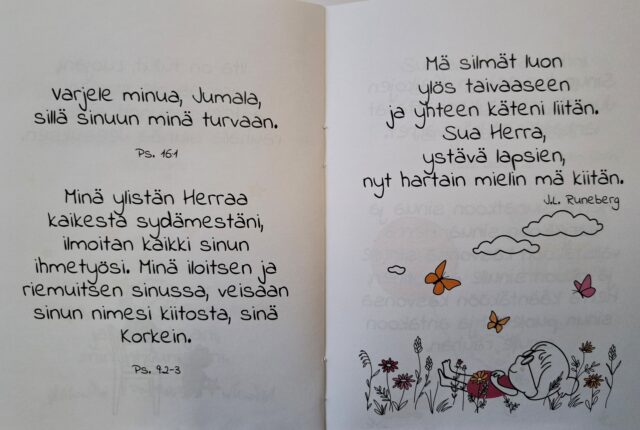 Varjele minua, Jumala,
sillä sinuun minä turvaan.
Ps. 16:1
Minä ylistän Herraa
kaikesta sydämestäni,
ilmoitan kaikki sinun
ihmetyösi. Minä iloitsen ja
riemuitsen sinussa, veisaan
sinun nimesi kiitosta, sinä
Korkein.
Ps. 9:2-3
Mä silmät luon
ylös taivaaseen
ja yhteen käteni liitän.
Sua Herra,
ystävä lapsien,
nyt hartain mielin mä kiitän.
J.L. Runeberg